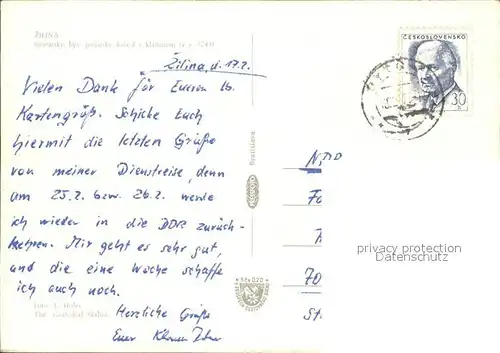 ŽILINA
ČESKOSLOVENSKO
30
Žilina, d. 17.2.
Vielen Dank für Euren lb.
Kartengruß. Schicke Euch
hiermit die letzten Grüße
von meiner Dienstreise, denn
am 25.2. bzw. 26.2. werde
ich wieder in die DDR zurück-
kehren. Mir geht es sehr gut,
und die eine Woche schaffe
ich auch noch.
Herzliche Grüße
Euer Klaus
Bratislava
privacy protection
Datenschutz